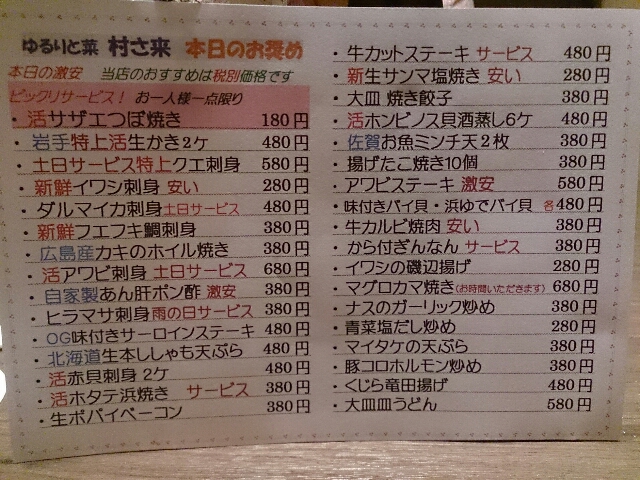 ゆるりと菜 村さ来 本日のお奨め
本日の激安 当店のおすすめは税別価格です
ビックリサービス! お一人様一点限り
・活サザエつぼ焼き 180円
・岩手特上活生かき2ケ 480円
・土日サービス特上クエ刺身 580円
・新鮮イワシ刺身 安い 280円
・ダルマイカ刺身土日サービス 480円
・新鮮フエフキ鯛刺身 380円
・広島産カキのホイル焼き 380円
・活アワビ刺身 土日サービス 680円
・自家製あん肝ポン酢 激安 380円
・ヒラマサ刺身雨の日サービス 380円
・OG味付きサーロインステーキ 480円
・北海道生本ししゃも天ぷら 480円
・活赤貝刺身 2ケ 480円
・活ホタテ浜焼き サービス 380円
・生ポパイベーコン 380円
・牛カットステーキ サービス 480円
・新生サンマ塩焼き 安い 280円
・大皿 焼き餃子 380円
・活ホンビノス貝酒蒸し6ケ 480円
・佐賀お魚ミンチ天2枚 380円
・揚げたこ焼き10個 380円
・アワビステーキ 激安 580円
・味付きバイ貝・浜ゆでバイ貝 各480円
・牛カルビ焼肉 安い 380円
・から付ぎんなん サービス 380円
・イワシの磯辺揚げ 280円
・マグロカマ焼き(お時間いただきます) 680円
・ナスのガーリック炒め 380円
・青菜塩だし炒め 280円
・マイタケの天ぷら 380円
・豚コロホルモン炒め 380円
・くじら竜田揚げ 480円
・大皿皿うどん 580円